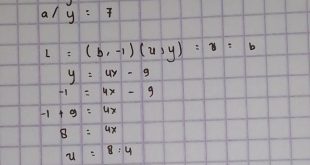 a/ y = 7
L = (b, -1) (x; y) = x = b
y = 4x - 9
-1 = 4x - 9
-1 + 9 = 4x
8 = 4x
x = 8:4